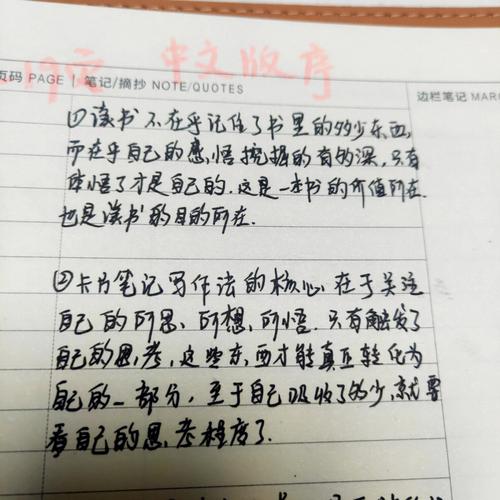 中文版序
页码 PAGE | 笔记/摘抄 NOTE/QUOTES
边栏笔记 MAR
①读书不在乎记住了书里的多少东西,
而在乎自己的感悟挖掘的有多深,只有
体悟了才是自己的.这是一本书的价值所在
也是读书的目的所在.
②卡片笔记写作法的核心,在于关注
自己的所思,所想,所悟.只有触发了
自己的思考,这些东西才能真正转化为
自己的一部分,至于自己吸收了多少,就要
看自己的思考程度了.